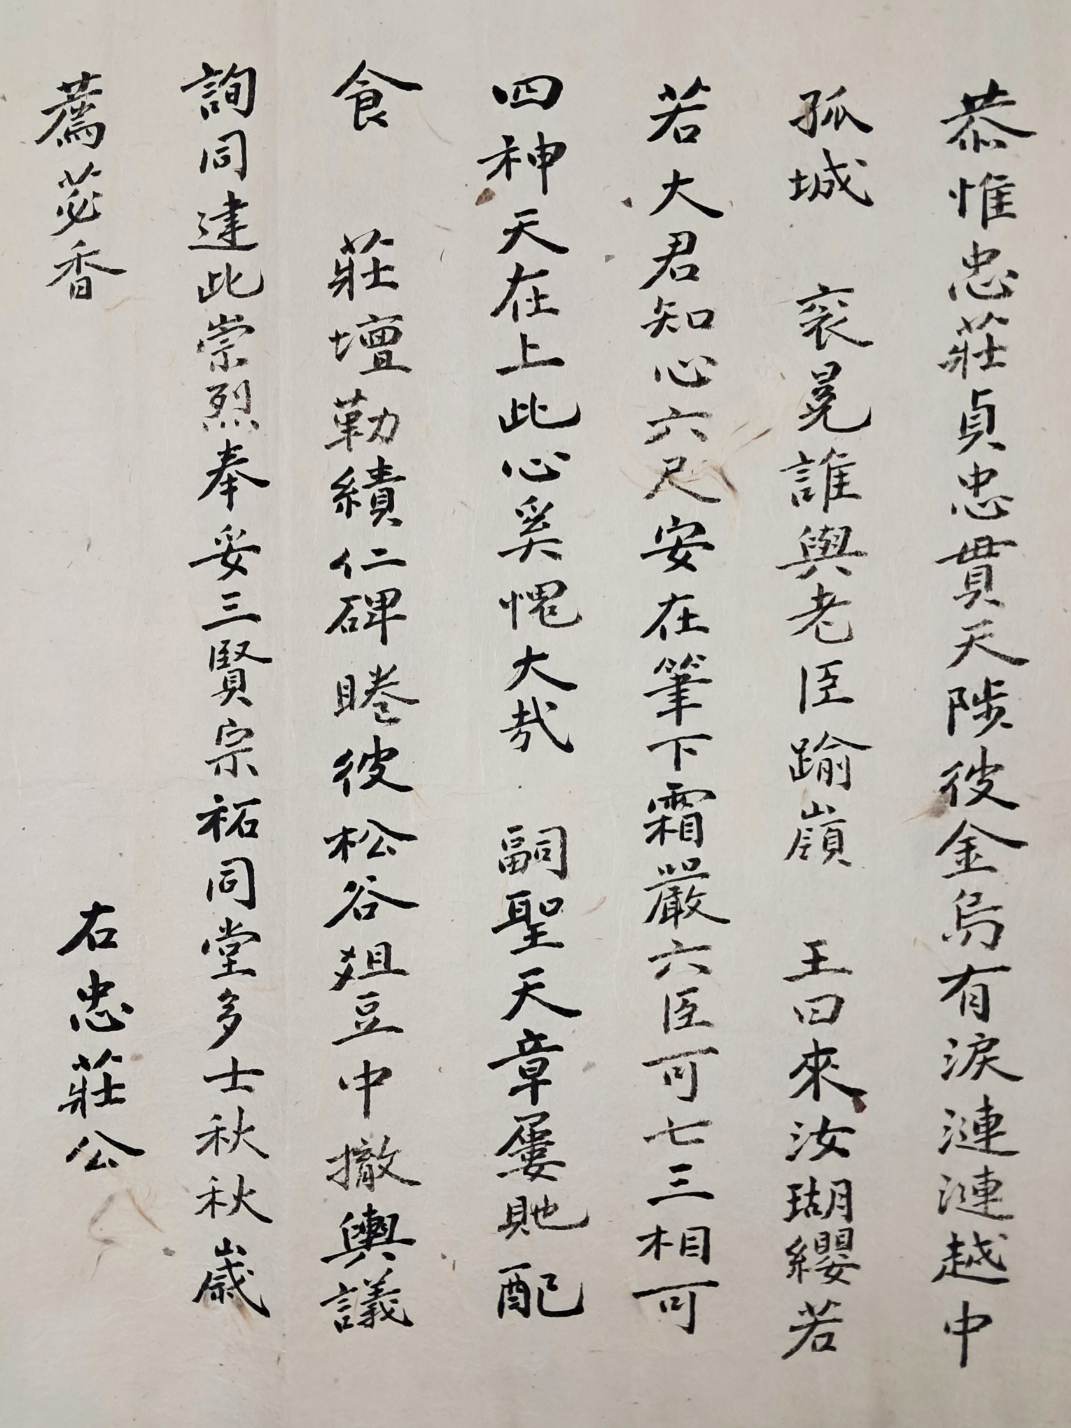 恭惟忠莊貞忠貫天陟彼金烏有淚漣漣越中
孤城 衮冕誰與老臣踰嶺 王曰來汝瑚纓若
若大君知心六尺安在筆下霜嚴六臣可七三相可
四神天在上此心奚愧大哉 嗣聖天章屢貤配
食 莊壇勒績仁碑睠彼松谷俎豆中撤輿議
詢同建此崇烈奉妥三賢宗祏同堂多士秋秋歲
薦苾香
右忠莊公